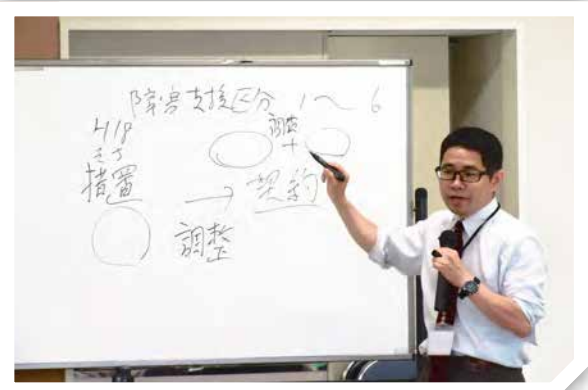 障害支援区分 1～6
H18
まで
措置
→ 契約
調査
+
調整